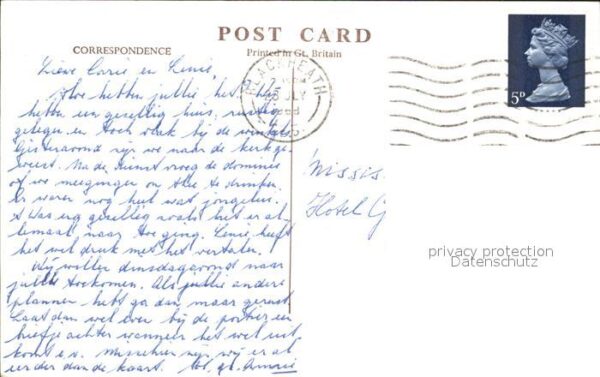 POST CARD
CORRESPONDENCE
Printed in Gt. Britain
BLACKHEATH
JLY
5D
Lieve Corrie en Lenie,
Hoe hebben jullie het? Wij
hebben een gezellig huis, rustig
gelegen en toch vlak bij de winkels
Gisteravond zijn we naar de kerk ge
weest. Na de dienst vroeg de dominee
of we meegingen om thee te drinken.
Er waren nog heel wat jongelui.
't Was erg gezellig zoals het er al
lemaal naar toe ging. Lenie heeft
het wel druk met het vertalen.
Wij willen dinsdagavond naar
jullie toekomen. Als jullie andere
plannen hebt ga dan maar gerust.
Laat dan wel even bij de portier een
briefje achter wanneer het wel uit
komt e.d. Misschien zijn wij er al
eerder dan de kaart.
Misses.
Hotel
privacy protection
Datenschutz